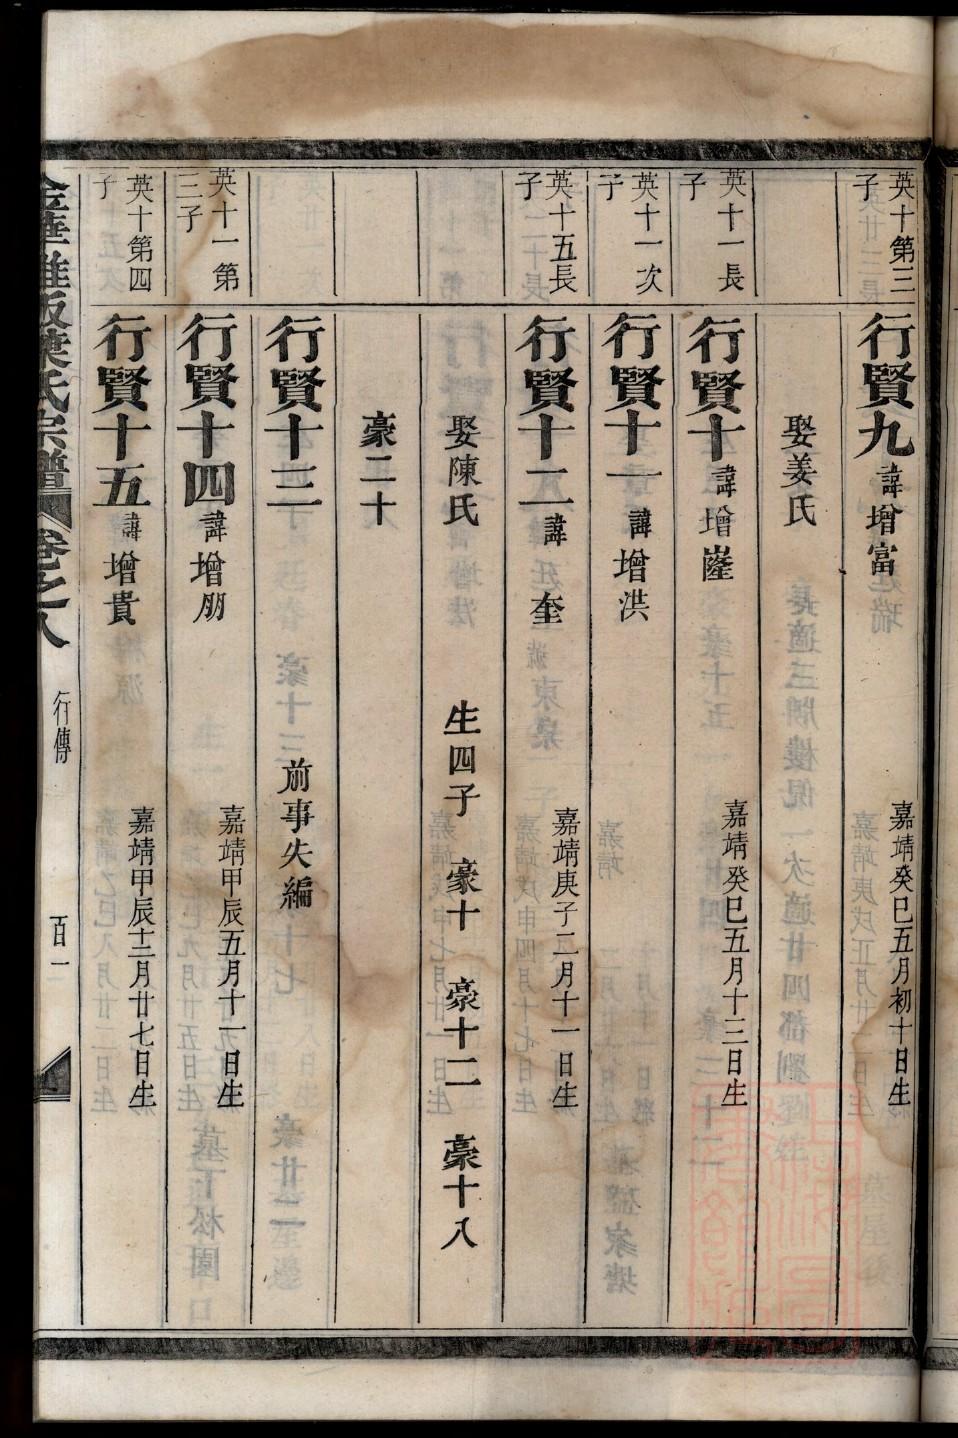 英十第三子
行賢九 諱增富 嘉靖癸巳五月初十日生
娶姜氏
英十一長子
行賢十 諱增嶐 嘉靖癸巳五月十三日生
英十一次子
行賢十一 諱增洪
英十五長子
行賢十二 諱奎 嘉靖庚子二月十一日生
娶陳氏 生四子 豪十 豪十二 豪十八
豪二十
行賢十三 前事失編
英十一第三子
行賢十四 諱增朋 嘉靖甲辰五月十二日生
英十第四子
行賢十五 諱增貴 嘉靖甲辰十二月廿七日生
金華雅畈葉氏宗譜 卷之八 行傳 百一